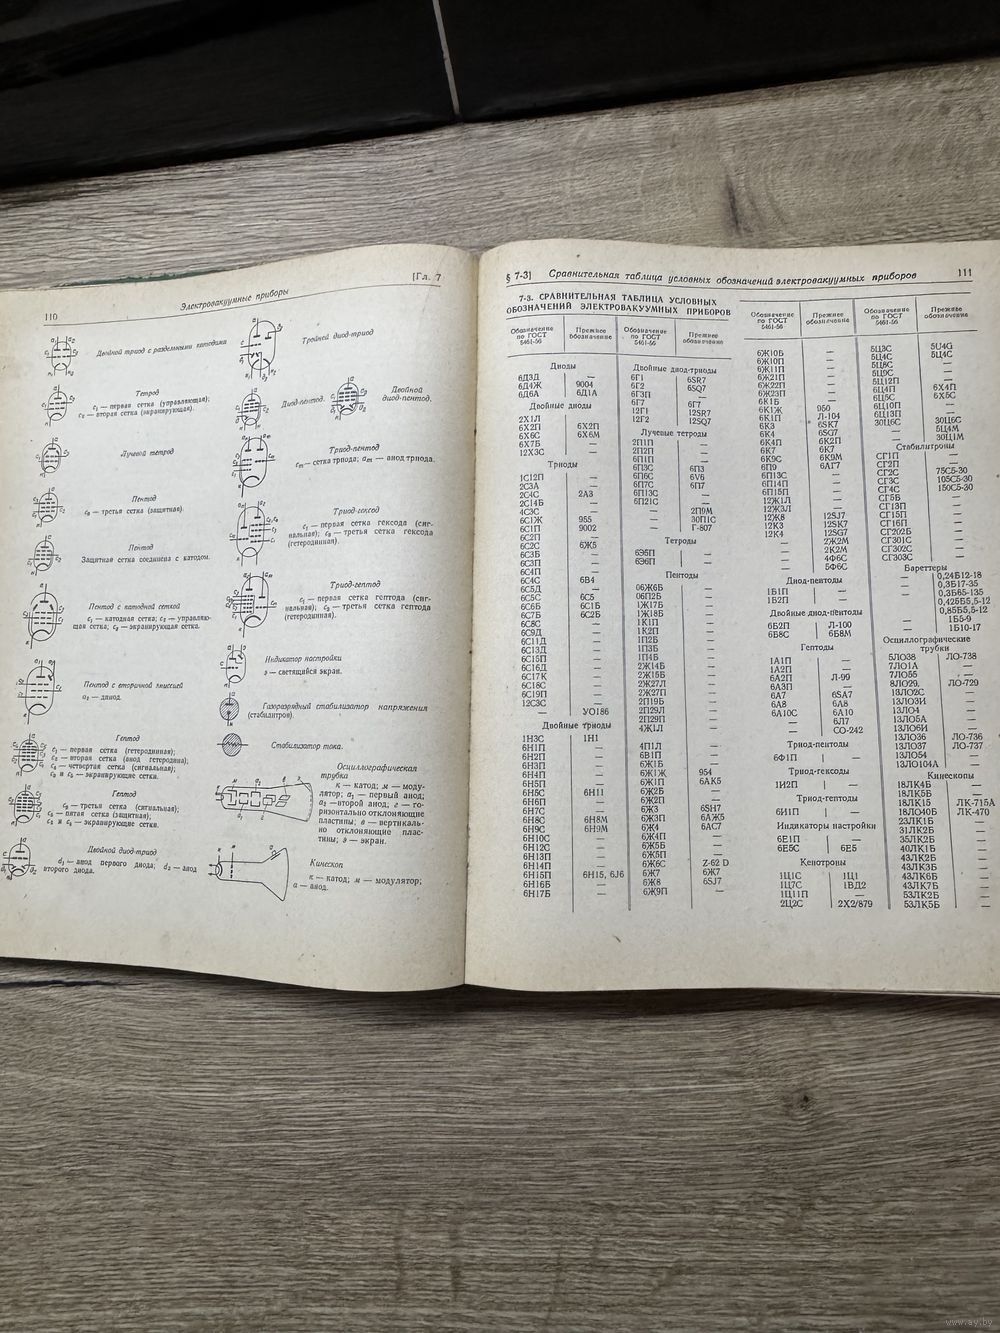 110
Электровакуумные приборы
[Гл. 7
Двойной триод с раздельными катодами
Тетрод
c₁ — первая сетка (управляющая);
c₂ — вторая сетка (экранирующая).
Лучевой тетрод
Пентод
c₃ — третья сетка (защитная).
Пентод
Защитная сетка соединена с катодом.
Пентод с катодной сеткой
c₁ — катодная сетка; c₂ — управляю-
щая сетка; c₃ — экранирующая сетка.
Пентод с вторичной эмиссией
— динод.
Гептод
c₁ — первая сетка (гетеродинная);
c₂ — вторая сетка (анод гетеродина);
c₄ — четвертая сетка (сигнальная);
c₃ и c₅ — экранирующие сетки.
Гептод
c₃ — третья сетка (сигнальная);
c₅ — пятая сетка (защитная);
— экранирующие сетки.
Двойной диод-триод
— анод первого диода; — анод
второго диода.
Тройной диод-триод
Диод-пентод
Двойной
диод-пентод.
Триод-пентод
— сетка триода; — анод триода.
Триод-гексод
c₁ — первая сетка гексода (сиг-
нальная); c₃ — третья сетка гексода
(гетеродинная).
Триод-гептод
c₁ — первая сетка гептода (сиг-
нальная); c₃ — третья сетка гептода
(гетеродинная).
Индикатор настройки
э — светящийся экран.
Газоразрядный стабилизатор напряжения
(стабилитрон).
Стабилизатор тока.
Осциллографическая
трубка
к — катод; м — моду-
лятор; a₁ — первый анод;
a₂ — второй анод; г — го-
ризонтально отклоняющие
пластины; в — вертикаль-
но отклоняющие плас-
тины; э — экран.
Кинескоп
к — катод; м — модулятор;
a — анод.
§ 7-3]
Сравнительная таблица условных обозначений электровакуумных приборов
111
7-3. СРАВНИТЕЛЬНАЯ ТАБЛИЦА УСЛОВНЫХ
ОБОЗНАЧЕНИЙ ЭЛЕКТРОВАКУУМНЫХ ПРИБОРОВ
Обозначение по ГОСТ 5461-56
Прежнее обозначение
Диоды
6Д3Д —
6Д4Ж 9004
6Д6А 6Д1А
Двойные диоды
2Х1Л —
6Х2П 6Х2П
6Х6С 6Х6М
6Х7Б —
12Х3С —
Триоды
1С12П —
2С3А —
2С4С 2А3
2С14Б —
4С3С —
6С1Ж 955
6С1П 9002
6С2П —
6С2С 6Ж5
6С3Б —
6С3П —
6С4П —
6С4С 6В4
6С5Д —
6С5С 6С5
6С6Б 6С1Б
6С7Б 6С2Б
6С8С —
6С9Д —
6С11Д —
6С13Д —
6С15П —
6С16Д —
6С17К —
6С18С —
6С19П —
12С3С —
— УО186
Двойные триоды
1Н3С 1Н1
6Н1П —
6Н2П —
6Н3П —
6Н4П —
6Н5П —
6Н5С 6Н11
6Н6П —
6Н7С —
6Н8С 6Н8М
6Н9С 6Н9М
6Н10С —
6Н12С —
6Н13П —
6Н14П —
6Н15П 6Н15, 6J6
6Н16Б —
6Н17Б —
Обозначение по ГОСТ 5461-56
Прежнее обозначение
Двойные диод-триоды
6Г1 6SR7
6Г2 6SQ7
6Г3П —
6Г7 6Г7
12Г1 12SR7
12Г2 12SQ7
Лучевые тетроды
2П1П —
2П2П —
6П1П —
6П3С 6П3
6П6С 6V6
6П7С 6П7
6П13С —
6П21С —
— 2П9М
— 30П1С
— Г-807
Тетроды
6Э5П —
6Э6П —
Пентоды
06Ж6Б —
06П2Б —
1Ж17Б —
1Ж18Б —
1К1П —
1К2П —
1П2Б —
1П3Б —
1П4Б —
2Ж14Б —
2Ж15Б —
2Ж27Л —
2Ж27П —
2П19Б —
2П29Л —
2П29П —
4Ж1Л —
4П1Л —
6В1П —
6Ж1Б —
6Ж1Ж 954
6Ж1П 6АК5
6Ж2Б —
6Ж2П —
6Ж3 6SH7
6Ж3П 6АЖ5
6Ж4 6АС7
6Ж4П —
6Ж5Б —
6Ж5П —
6Ж6С Z-62 D
6Ж7 6Ж7
6Ж8 6SJ7
6Ж9П —
Обозначение по ГОСТ 5461-56
Прежнее обозначение
6Ж10Б —
6Ж10П —
6Ж11П —
6Ж21П —
6Ж22П —
6Ж23П —
6К1Б —
6К1Ж 950
6К1П Л-104
6К3 6SK7
6К4 6SG7
6К4П 6К2П
6К7 6К7
6К9С 6К9М
6П9 6АГ7
6П13С —
6П14П —
6П15П —
12Ж1Л —
12Ж3Л —
12Ж8 12SJ7
12К3 12SK7
12К4 12SG7
— 2Ж2М
— 2К2М
— 4Ф6С
— 5Ф6С
Диод-пентоды
1Б1П —
1Б2П —
Двойные диод-пентоды
6Б2П Л-100
6Б8С 6Б8М
Гептоды
1А1П —
1А2П —
6А2П Л-99
6А3П —
6А7 6SA7
6А8 6А8
6А10С 6А10
— 6Л7
— СО-242
Триод-пентоды
6Ф1П —
Триод-гексоды
1И2П —
Триод-гептоды
6И1П —
Индикаторы настройки
6Е1П —
6Е5С 6Е5
Кенотроны
1Ц1С 1Ц1
1Ц7С 1ВД2
1Ц11П —
2Ц2С 2Х2/879
Обозначение по ГОСТ 5461-56
Прежнее обозначение
5Ц3С 5U4G
5Ц4С 5Ц4С
5Ц8С —
5Ц9С —
5Ц12П —
6Ц4П 6Х4П
6Ц5С 6Х5С
6Ц10П —
6Ц13П —
30Ц6С 30Ц6С
— 5Ц4М
— 30Ц1М
Стабилитроны
СГ1П —
СГ2П —
СГ2С 75С5-30
СГ3С 105С5-30
СГ4С 150С5-30
СГ5Б —
СГ13П —
СГ15П —
СГ16П —
СГ202Б —
СГ301С —
СГ302С —
СГ303С —
Бареттеры
— 0,24Б12-18
— 0,3Б17-35
— 0,3Б65-135
— 0,425Б5,5-12
— 0,85Б5,5-12
— 1Б5-9
— 1Б10-17
Осциллографические
трубки
5ЛО38 ЛО-738
7ЛО1А —
7ЛО55 —
8ЛО29. ЛО-729
13ЛО2С —
13ЛО3И —
13ЛО4 —
13ЛО5А —
13ЛО6И —
13ЛО36 ЛО-736
13ЛО37 ЛО-737
13ЛО54 —
13ЛО104А —
Кинескопы
18ЛК4Б —
18ЛК5Б —
18ЛК15 ЛК-715А
18ЛО40Б ЛК-470
23ЛК1Б —
31ЛК2Б —
35ЛК2Б —
40ЛК1Б —
43ЛК2Б —
43ЛК3Б —
43ЛК6Б —
43ЛК7Б —
53ЛК2Б —
53ЛК5Б —
www.ay.by